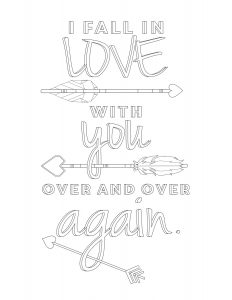 I FALL IN
LOVE
WITH
you
OVER AND OVER
again.